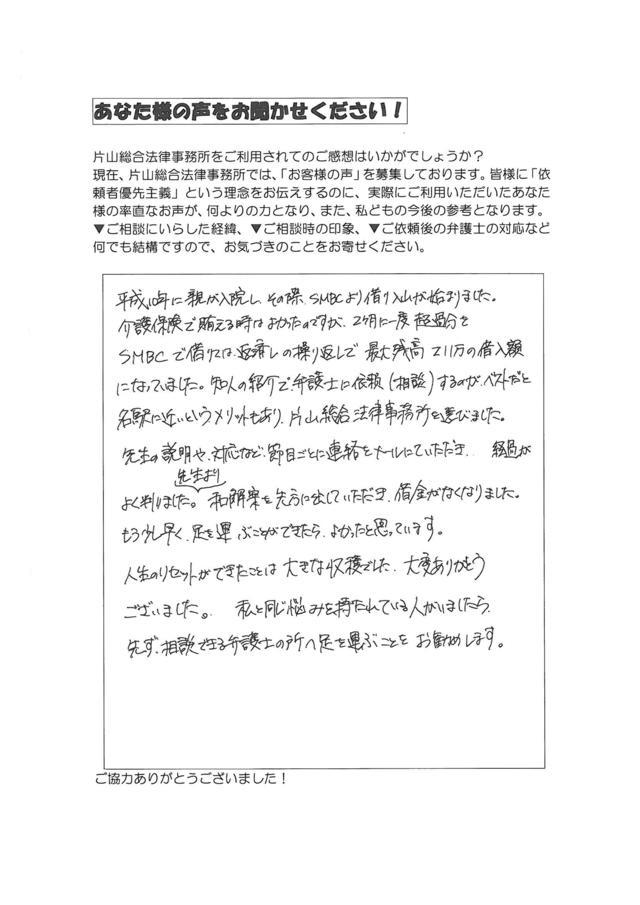 あなた様の声をお聞かせください！
片山総合法律事務所をご利用されてのご感想はいかがでしょうか？
現在、片山総合法律事務所では、「お客様の声」を募集しております。皆様に「依
頼者優先主義」という理念をお伝えするのに、実際にご利用いただいたあなた
様の率直なお声が、何よりの力となり、また、私どもの今後の参考となります。
▼ご相談にいらした経緯、▼ご相談時の印象、▼ご依頼後の弁護士の対応など
何でも結構ですので、お気づきのことをお寄せください。
平成10年に親が入院し、その際、SMBCより借り入れが始まりました。
介護保険で賄える時はよかったのですが、2ケ月に一度 超過分を
SMBCで借りては、返済しの繰り返しで 最大残高 211万の借入額
になっていました。知人の紹介で、弁護士に依頼（相談）するのが、ベストだと
名駅に近いというメリットもあり、片山総合法律事務所を選びました。
先生の説明や、対応など、節目ごとに連絡をメールにていただき、経過が
先生より
よく判りました。和解案を先方に出していただき、借金がなくなりました。
もう少し早く、足を運ぶことができたら、よかったと思っています。
人生のリセットができたことは 大きな収穫でした。大変ありがとう
ございました。 私と同じ悩みを持たれている人がいましたら、
先ず、相談できる弁護士の所へ足を運ぶことを お勧めします。
ご協力ありがとうございました！